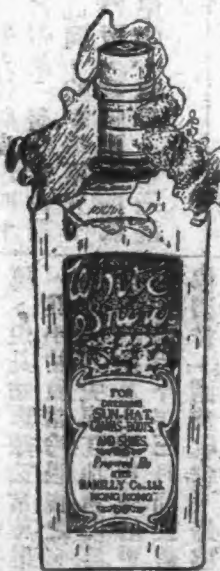 White
Snow
FOR
CLEANING
SUN-HAT,
CANVAS-BOOTS,
AND SHOES.
Prepared By
THE
Co. Ltd.
HONG KONG